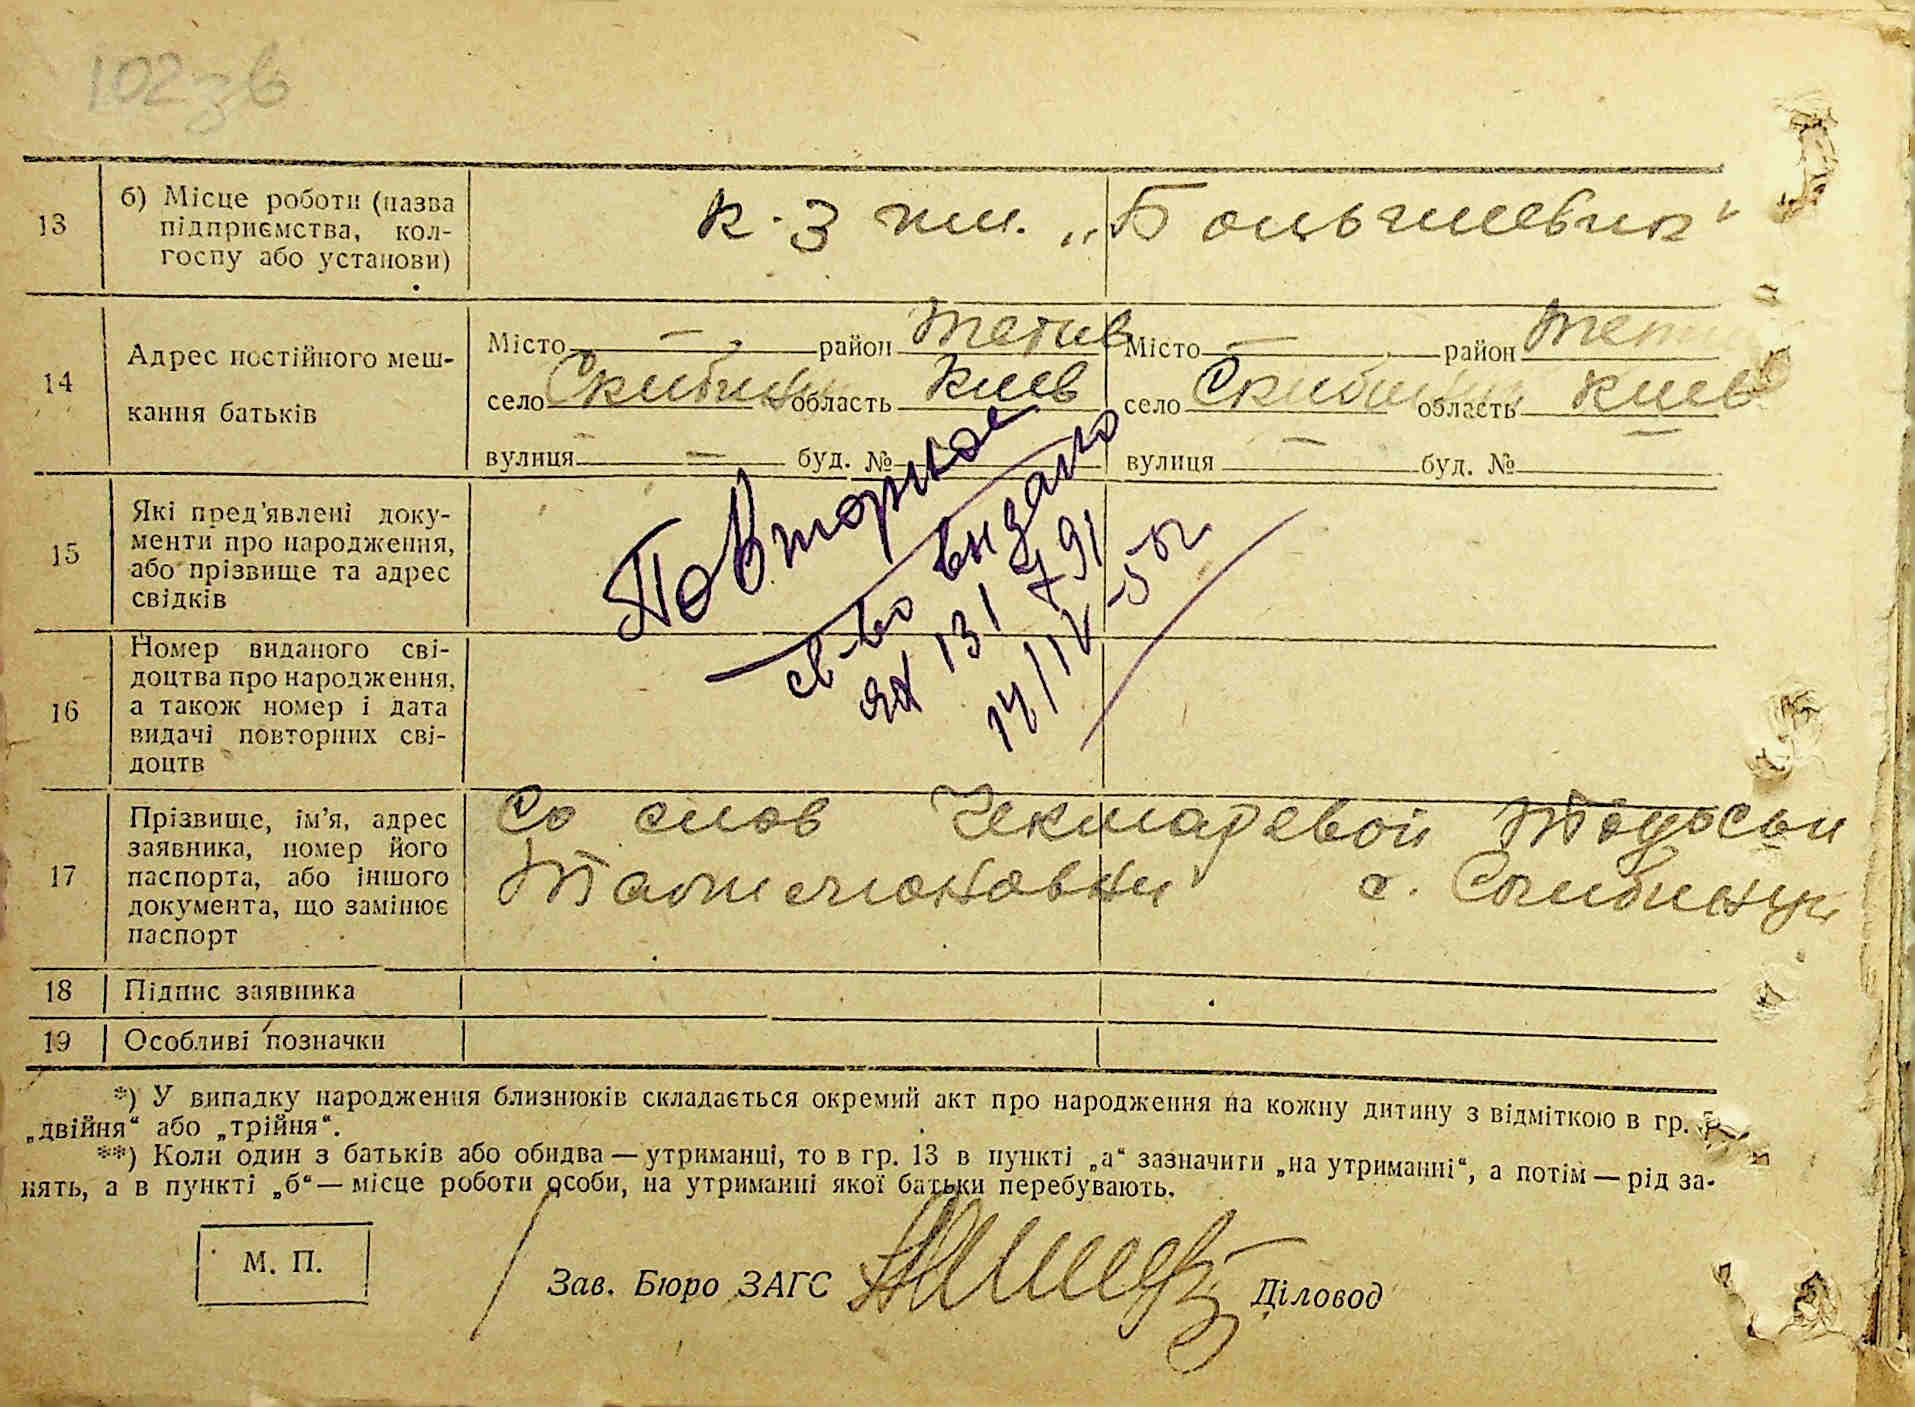 102зв
13
б) Місце роботи (назва
підприємства, кол-
госпу або установи)
к-з им. „Большевик“
14
Адрес постійного меш-
кання батьків
Місто — район Тетиев
село Скибинци область Киев
вулиця — буд. №
Місто — район Тети
село Скибинци область Киев
вулиця — буд. №
15
Які пред’явлені доку-
менти про народження,
або прізвище та адрес
свідків
Повторное
св-во выдано
ЯХ 131791
14/IV-50г
16
Номер виданого сві-
доцтва про народження,
а також номер і дата
видачі повторних сві-
доцтв
17
Прізвище, ім’я, адрес
заявника, номер його
паспорта, або іншого
документа, що замінює
паспорт
Со слов Чекмаревой
с. Скибинци
18 Підпис заявника
19 Особливі позначки
*) У випадку народження близнюків складається окремий акт про народження на кожну дитину з відміткою в гр.
„двійня“ або „трійня“.
**) Коли один з батьків або обидва — утриманці, то в гр. 13 в пункті „а“ зазначити „на утриманні“, а потім — рід за-
нять, а в пункті „б“ — місце роботи особи, на утриманні якої батьки перебувають.
М. П.
Зав. Бюро ЗАГС
Діловод